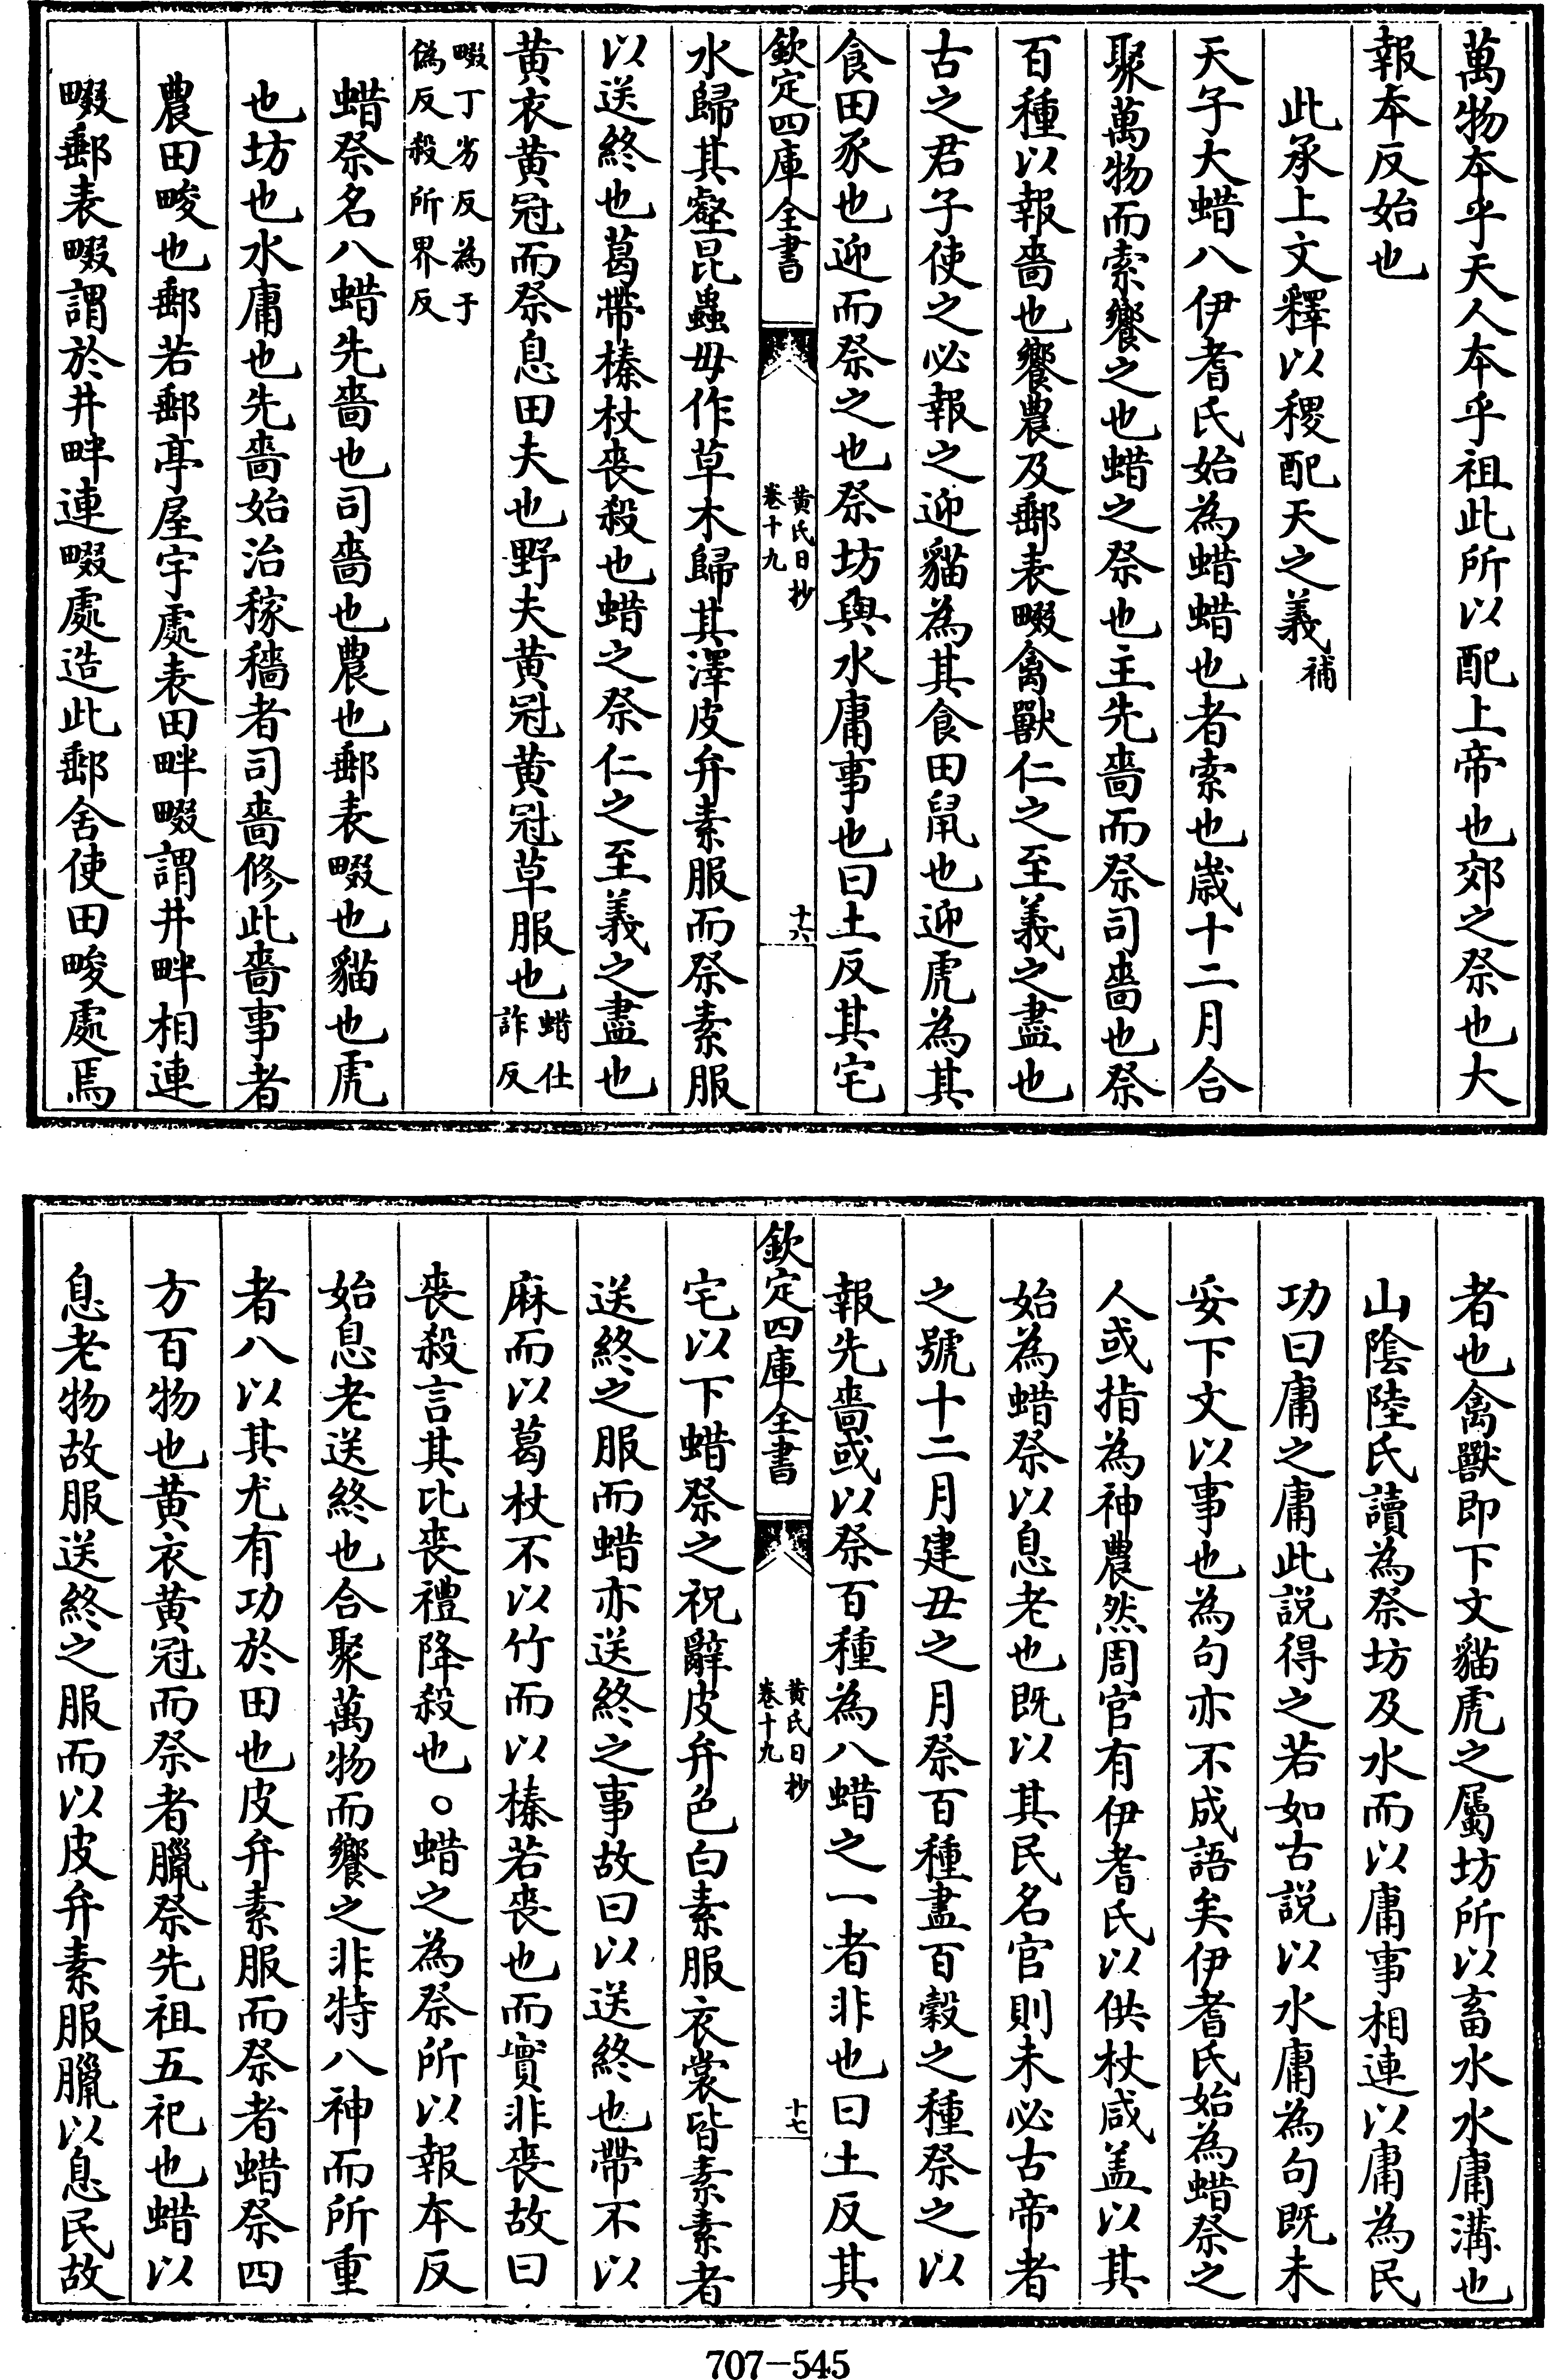 萬物本乎天人本乎祖此所以配上帝也郊之祭也大
報本反始也
此承上文釋以稷配天之義補
天子大蜡八伊耆氏始為蜡蜡也者索也歳十二月合
聚萬物而索饗之也蜡之祭也主先嗇而祭司嗇也祭
百種以報嗇也饗農及郵表畷禽獸仁之至義之盡也
古之君子使之必報之迎貓為其食田鼠也迎虎為其
食田豕也迎而祭之也祭坊與水庸事也曰土反其宅
欽定四庫全書
黄氏日抄
卷十九
十六
水歸其壑昆蟲毋作草木歸其澤皮弁素服而祭素服
以送終也葛帶榛杖喪殺也蜡之祭仁之至義之盡也
黄衣黄冠而祭息田夫也野夫黄冠黄冠草服也蜡仕
詐反
畷丁劣反為于
偽反殺所界反
蜡祭名八蜡先嗇也司嗇也農也郵表畷也貓也虎
也坊也水庸也先嗇始治稼穡者司嗇修此嗇事者
農田畯也郵若郵亭屋宇處表田畔畷謂井畔相連
畷郵表畷謂於井畔連畷處造此郵舍使田畯處焉
者也禽獸即下文貓虎之屬坊所以畜水水庸溝也
山陰陸氏讀為祭坊及水而以庸事相連以庸為民
功曰庸之庸此説得之若如古説以水庸為句既未
妥下文以事也為句亦不成語矣伊耆氏始為蜡祭之
人或指為神農然周官有伊耆氏以供杖咸盖以其
始為蜡祭以息老也既以其民名官則未必古帝者
之號十二月建丑之月祭百種盡百穀之種祭之以
報先嗇或以祭百種為八蜡之一者非也曰土反其
欽定四庫全書
黄氏日抄
卷十九
十七
宅以下蜡祭之祝辭皮弁色白素服衣裳皆素素者
送終之服而蜡亦送終之事故曰以送終也帶不以
麻而以葛杖不以竹而以榛若喪也而實非喪故曰
喪殺言其比喪禮降殺也○蜡之為祭所以報本反
始息老送終也合聚萬物而饗之非特八神而所重
者八以其尤有功於田也皮弁素服而祭者蜡祭四
方百物也黄衣黄冠而祭者臘祭先祖五祀也蜡以
息老物故服送終之服而以皮弁素服臘以息民故
707-545